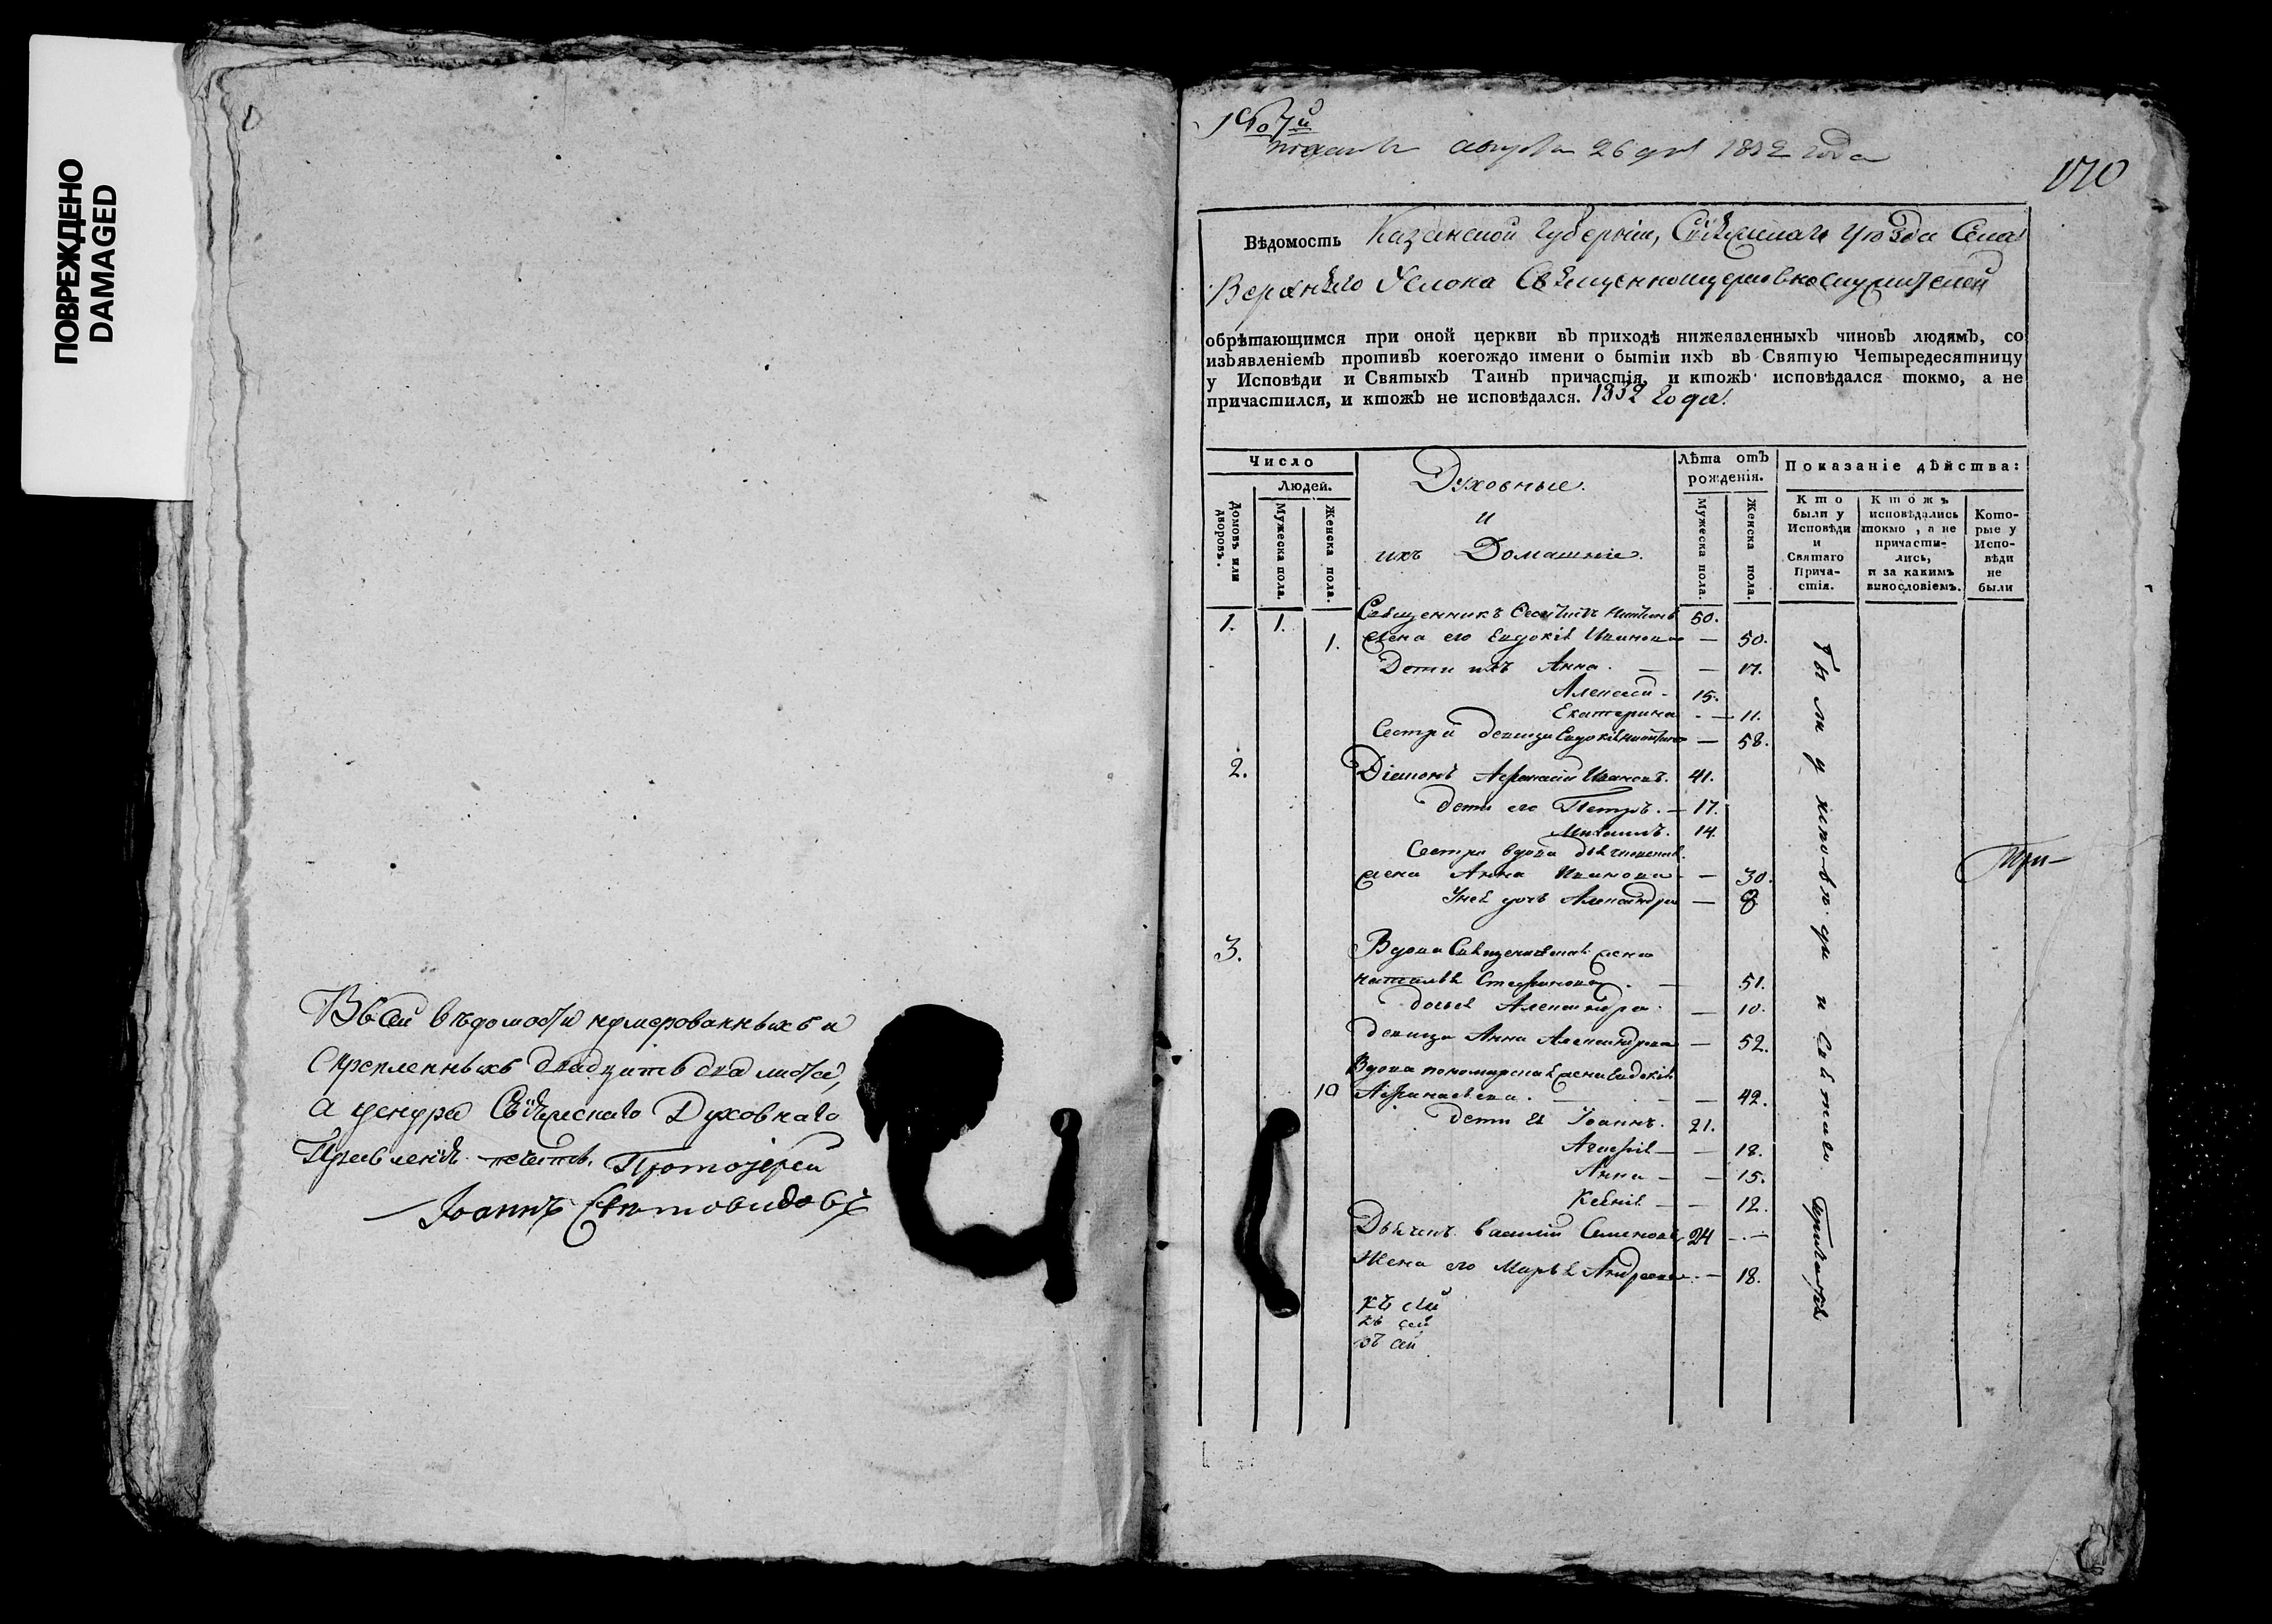 ПОВРЕЖДЕНО
DAMAGED
Въ сей вѣдомости нумерованныхъ и
Скрепленныхъ двадцать два листа,
а цензура Свіяжскаго Духовнаго
Правленія Протоіерей
Іоаннъ Святовидовъ
августа 26 дня 1832 года
170
Вѣдомость Казанской Губерніи, Свіяжскаго Уѣзда Села
Верхняго Услона Священноцерковнослужителей
обрѣтающимся при оной церкви въ приходѣ нижеявленныхъ чиновъ людямъ, со
изъявленіемъ противъ коегождо имени о бытіи ихъ въ Святую Четыредесятницу
у Исповѣди и Святыхъ Таинъ причастія, и ктожъ исповѣдался токмо, а не
причастился, и ктожъ не исповѣдался. 1832 года.
Число
Людей.
Домовъ или дворовъ.
Мужеска пола.
Женска пола.
Духовные
и
ихъ Домашніе.
Лѣта отъ рожденія.
Мужеска пола.
Женска пола.
Показаніе дѣйства:
Кто были у Исповѣди и Святаго Причастія.
Ктожъ исповѣдались токмо, а не причастились, и за какимъ винословіемъ.
Которые у Исповѣди не были
1. 1. Священникъ 50.
1. жена его Евдокія Иванова — 50.
Дети ихъ Анна — — 17.
Алексей 15.
Екатерина — 11.
Сестра девица Евдокія — 58.
2. Діаконъ Афанасій Ивановъ. 41.
дети его Петръ. — 17.
Михаилъ. 14.
Сестра вдова дьяческая
жена Анна Иванова — 30.
У нея дочь Александра — 8
3. Вдова Священическая жена
Наталья Стефанова — 51.
дочь ея Александра — 10.
девица Анна Александрова — 52.
Вдова пономарская жена Евдокія
10 Афанасьева — 42.
дети ея Іоаннъ. 21.
Агафія — — 18.
Анна — — 15.
Ксенія — — 12.
Дьячекъ Василій Семеновъ 24 —
Жена его Марья Андреева — 18.
Къ сей
Къ сей
Къ сей
Были у исповѣди и Святаго Причастія
При-